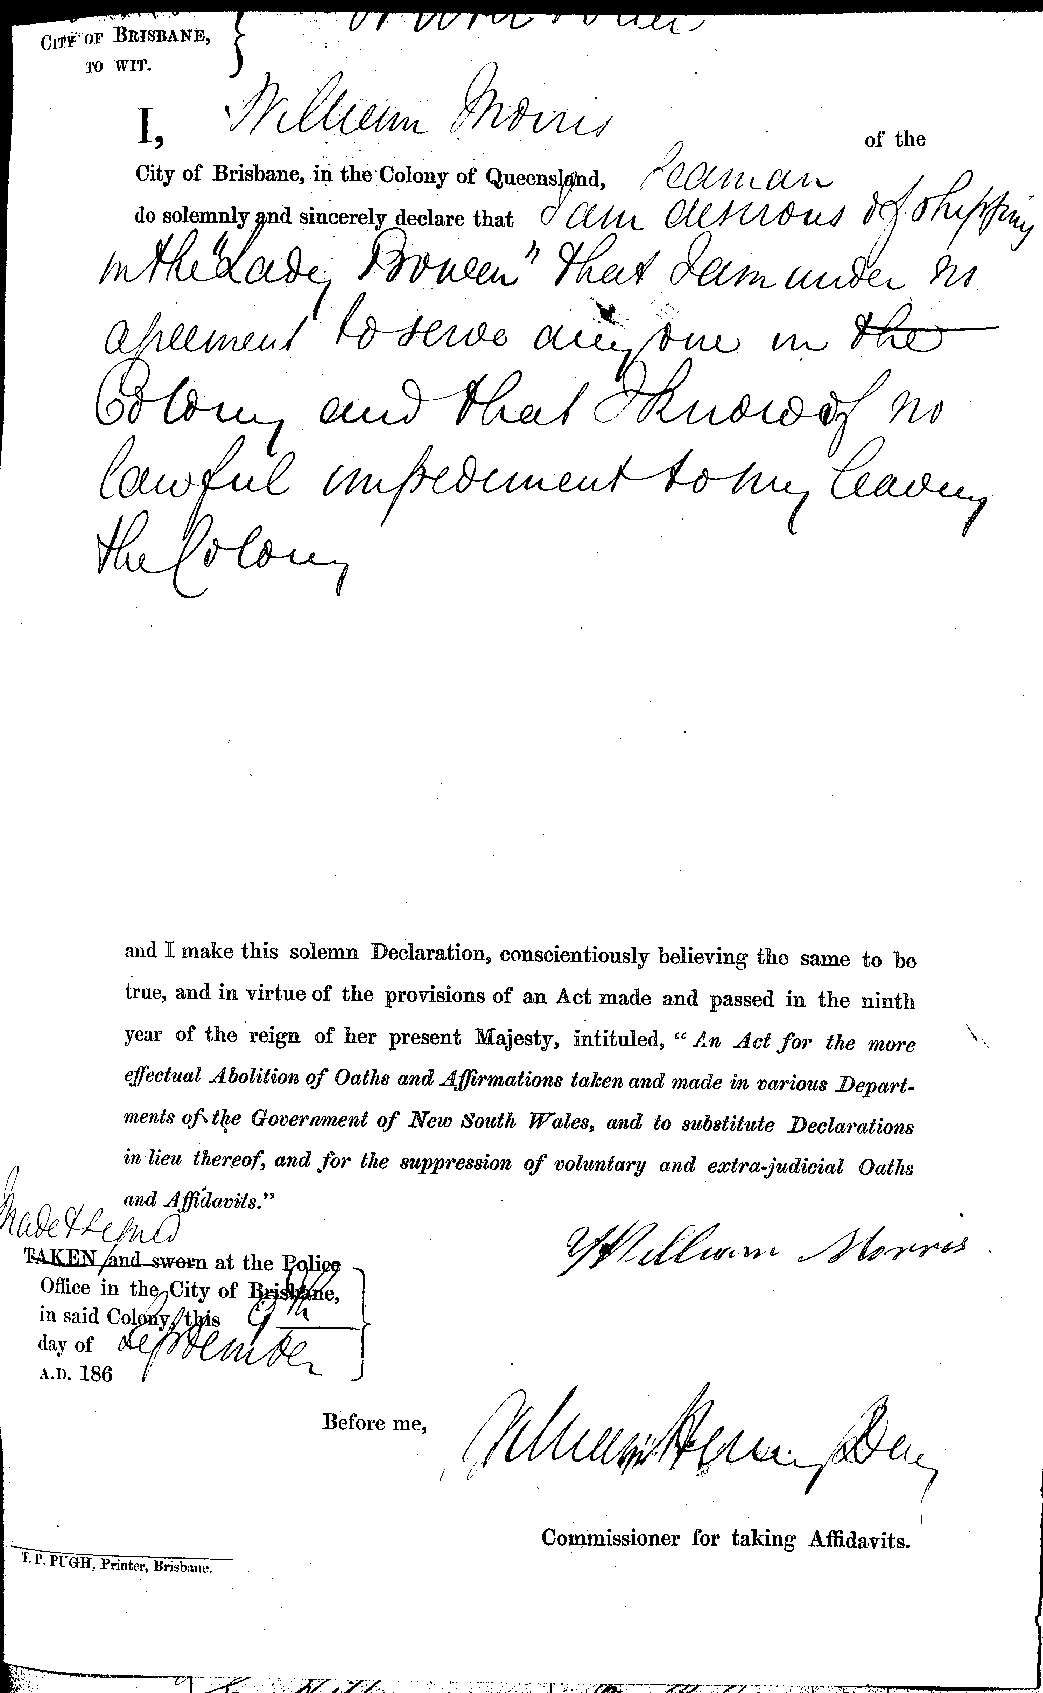 CITY OF BRISBANE,
TO WIT.
I, William Morris of the
City of Brisbane, in the Colony of Queensland, Seaman
do solemnly and sincerely declare that I am desirous of shipping
in the "Lady Bowen" that I am under no
agreement to serve any one in the
Colony and that I know of no
lawful impediment to my leaving
the Colony
and I make this solemn Declaration, conscientiously believing the same to be
true, and in virtue of the provisions of an Act made and passed in the ninth
year of the reign of her present Majesty, intituled, "An Act for the more
effectual Abolition of Oaths and Affirmations taken and made in various Depart-
ments of the Government of New South Wales, and to substitute Declarations
in lieu thereof, and for the suppression of voluntary and extra-judicial Oaths
and Affidavits."
Made & signed
William Morris
TAKEN and sworn at the Police
Office in the City of Brisbane,
in said Colony, this 9th
day of September
A.D. 186
Before me, William Henry Day
Commissioner for taking Affidavits.
T. P. PUGH, Printer, Brisbane.